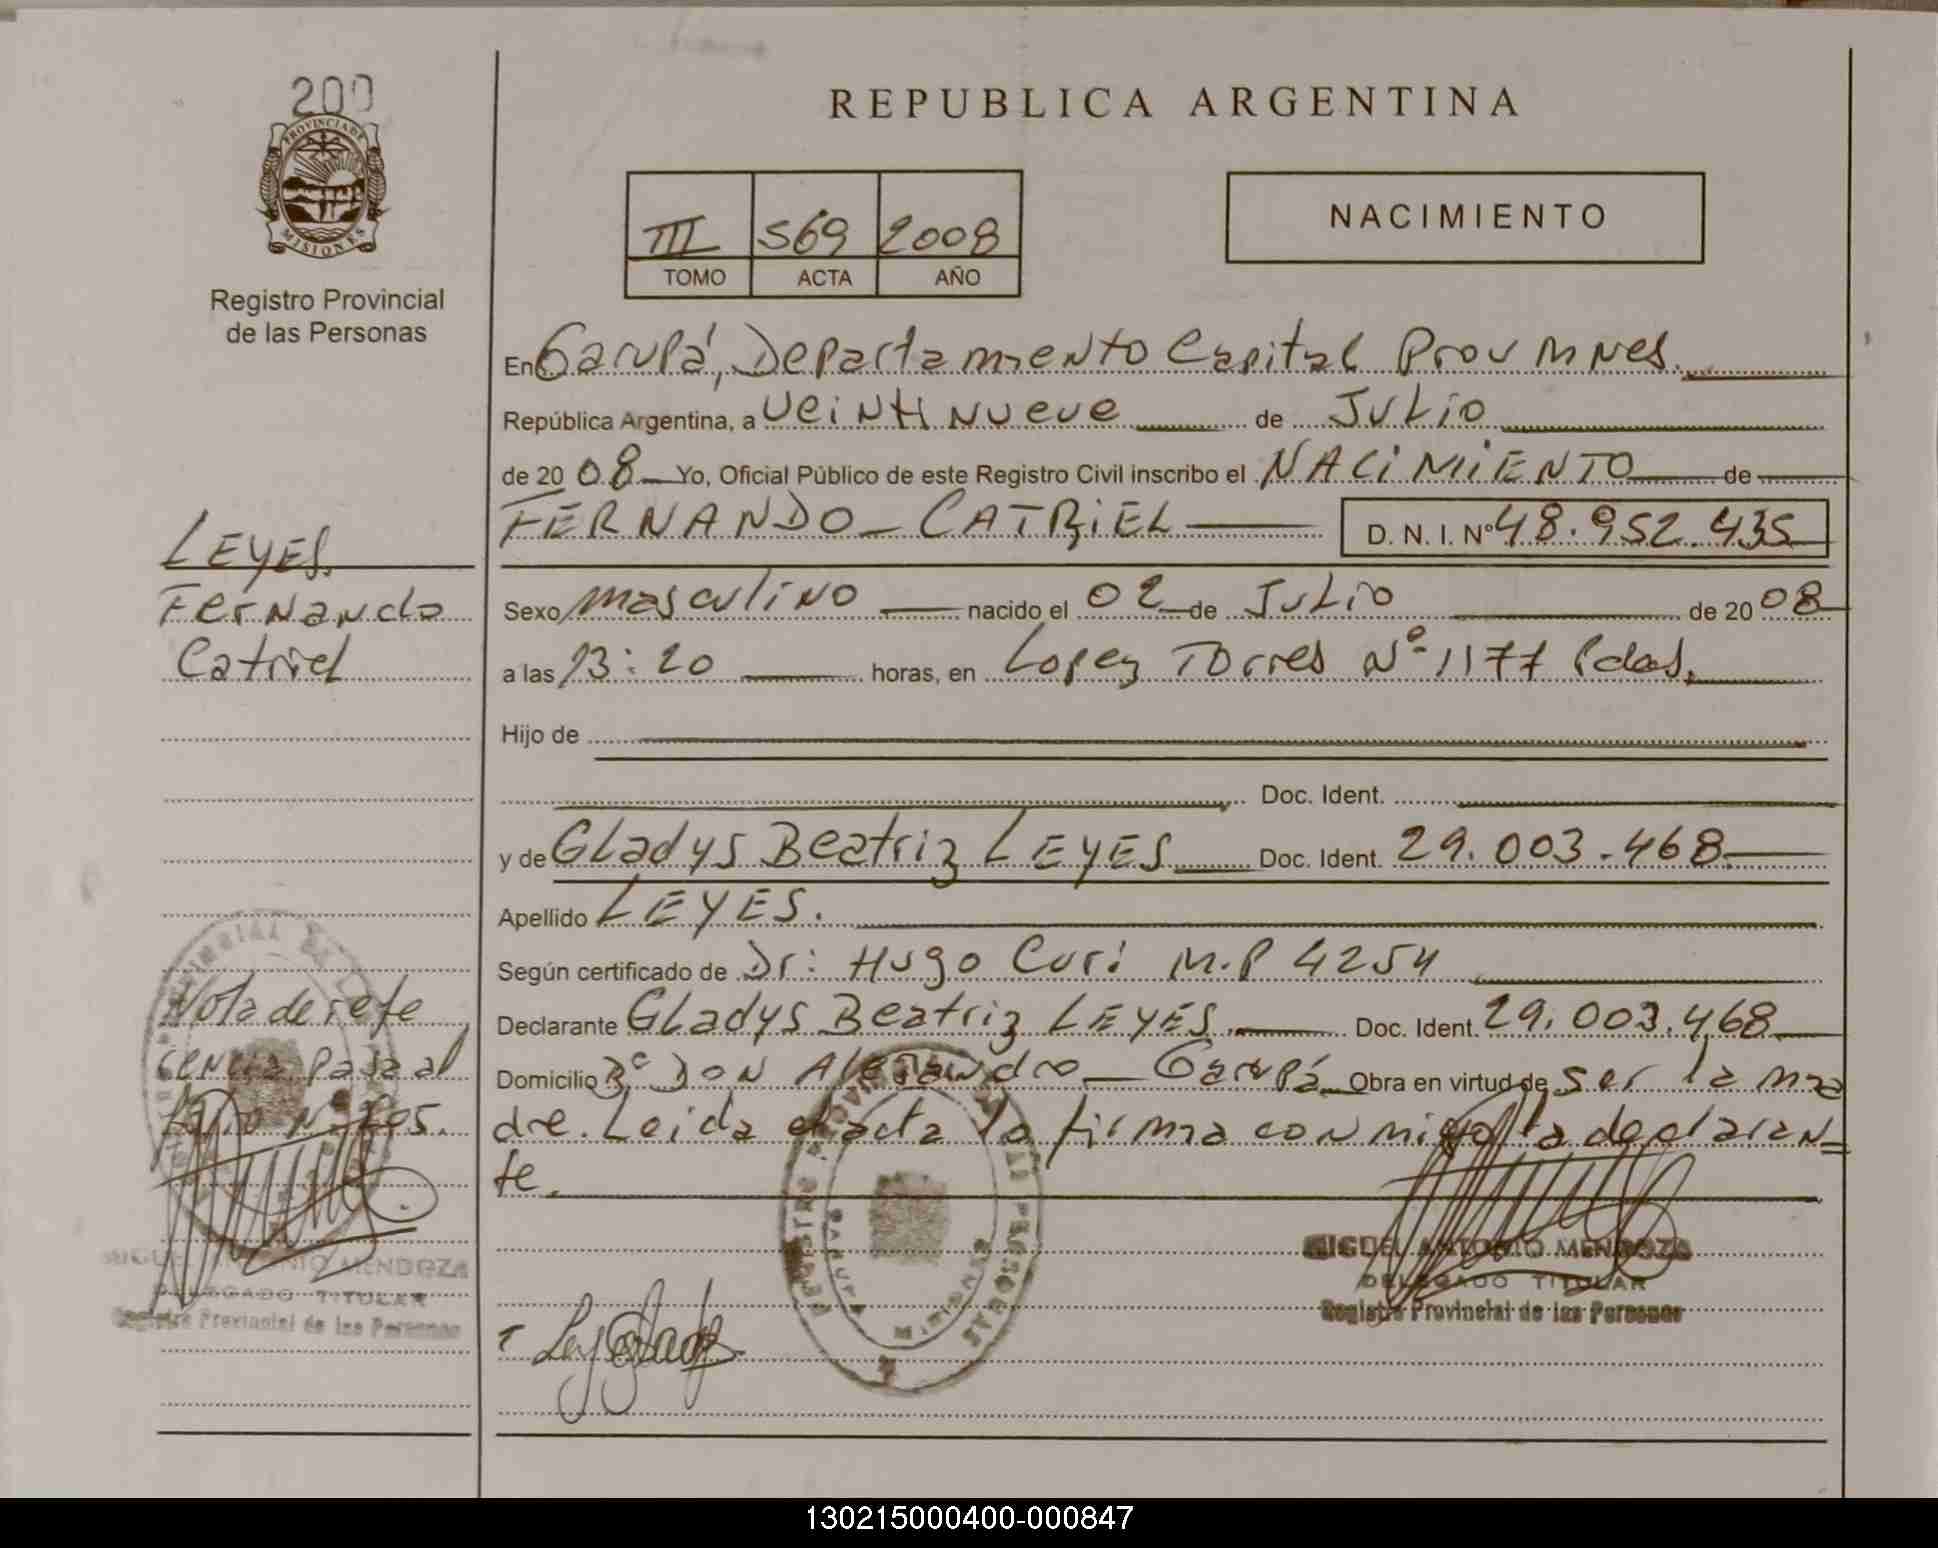 200
PROVINCIA DE
MISIONES
Registro Provincial
de las Personas
REPUBLICA ARGENTINA
III 569 2008
TOMO ACTA AÑO
NACIMIENTO
En Garupá, Departamento Capital Prov Mnes.
República Argentina, a veinti nueve de Julio
de 20 08 Yo, Oficial Público de este Registro Civil inscribo el NACIMIENTO de
FERNANDO - CATRIEL D. N. I. Nº 48.952.435
Sexo masculino nacido el 02 de Julio de 20 08
a las 13:20 horas, en Lopez Torres Nº 1177 Pdas.
Hijo de
Doc. Ident.
y de Gladys Beatriz LEYES Doc. Ident. 29.003.468
Apellido LEYES.
Según certificado de Dr: Hugo Curi M.P 4254
Declarante Gladys Beatriz LEYES Doc. Ident. 29.003.468
Domicilio Bº DON Alejandro - Garupá Obra en virtud de ser la ma
dre. Leida el acta la firma conmigo la declaran=
te.
MIGUEL ANTONIO MENDOZA
DELEGADO TITULAR
Registro Provincial de las Personas
LEYES.
Fernando
Catriel
Nota de refe
rencia pasa al
folio Nº 205.
MIGUEL ANTONIO MENDOZA
DELEGADO TITULAR
Registro Provincial de las Personas
130215000400-000847